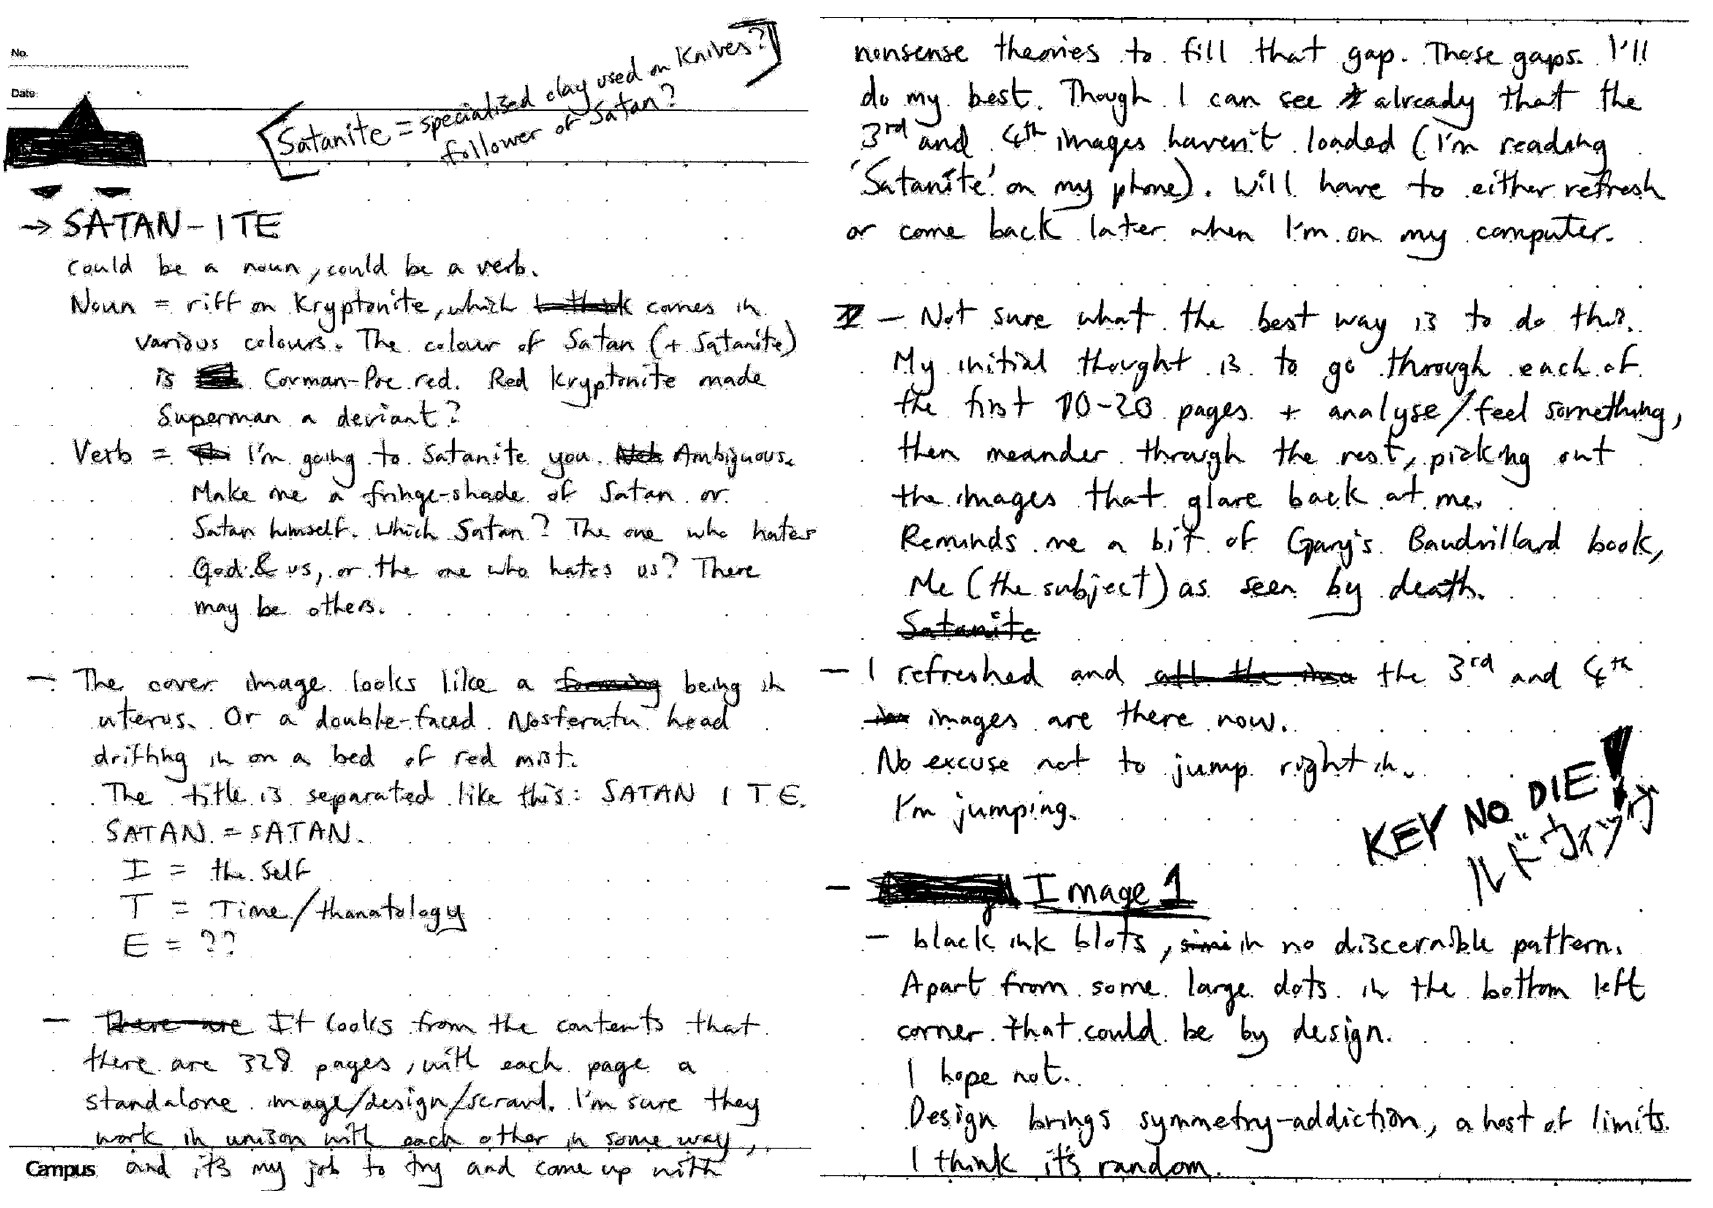 No.
Date
[Satanite = specialised clay used on Knives?
follower of Satan?]
→ SATAN-ITE
could be a noun, could be a verb.
Noun = riff on Kryptonite, which I think comes in
various colours. The colour of Satan (+ Satanite)
is Corman-Poe red. Red Kryptonite made
Superman a deviant?
Verb = I'm going to Satanite you. Ambiguous.
Make me a fringe-shade of Satan or
Satan himself. Which Satan? The one who hates
God & us, or the one who hates us? There
may be others.
- The cover image looks like a forming being in
uterus. Or a double-faced Nosferatu head
drifting in on a bed of red mist.
The title is separated like this: SATAN I T E.
SATAN = SATAN.
I = the self
T = Time/thanatology
E = ??
- There are It looks from the contents that
there are 328 pages, with each page a
standalone image/design/scrawl. I'm sure they
work in unison with each other in some way,
Campus and it's my job to try and come up with
nonsense theories to fill that gap. Those gaps. I'll
do my best. Though I can see already that the
3rd and 4th images haven't loaded (I'm reading
'Satanite' on my phone). Will have to either refresh
or come back later when I'm on my computer.
- Not sure what the best way is to do this.
My initial thought is to go through each of
the first 10-20 pages + analyse/feel something,
then meander through the rest, picking out
the images that glare back at me.
Reminds me a bit of Gary's Baudrillard book,
Me (the subject) as seen by death.
Satanite
- I refreshed and all the the 3rd and 4th
images are there now.
No excuse not to jump right in.
I'm jumping.
KEY NO DIE!
ルドヴィッヴ
- Image 1
- black ink blots, in no discernible pattern.
Apart from some large dots in the bottom left
corner that could be by design.
I hope not.
Design brings symmetry-addiction, a host of limits.
I think it's random.